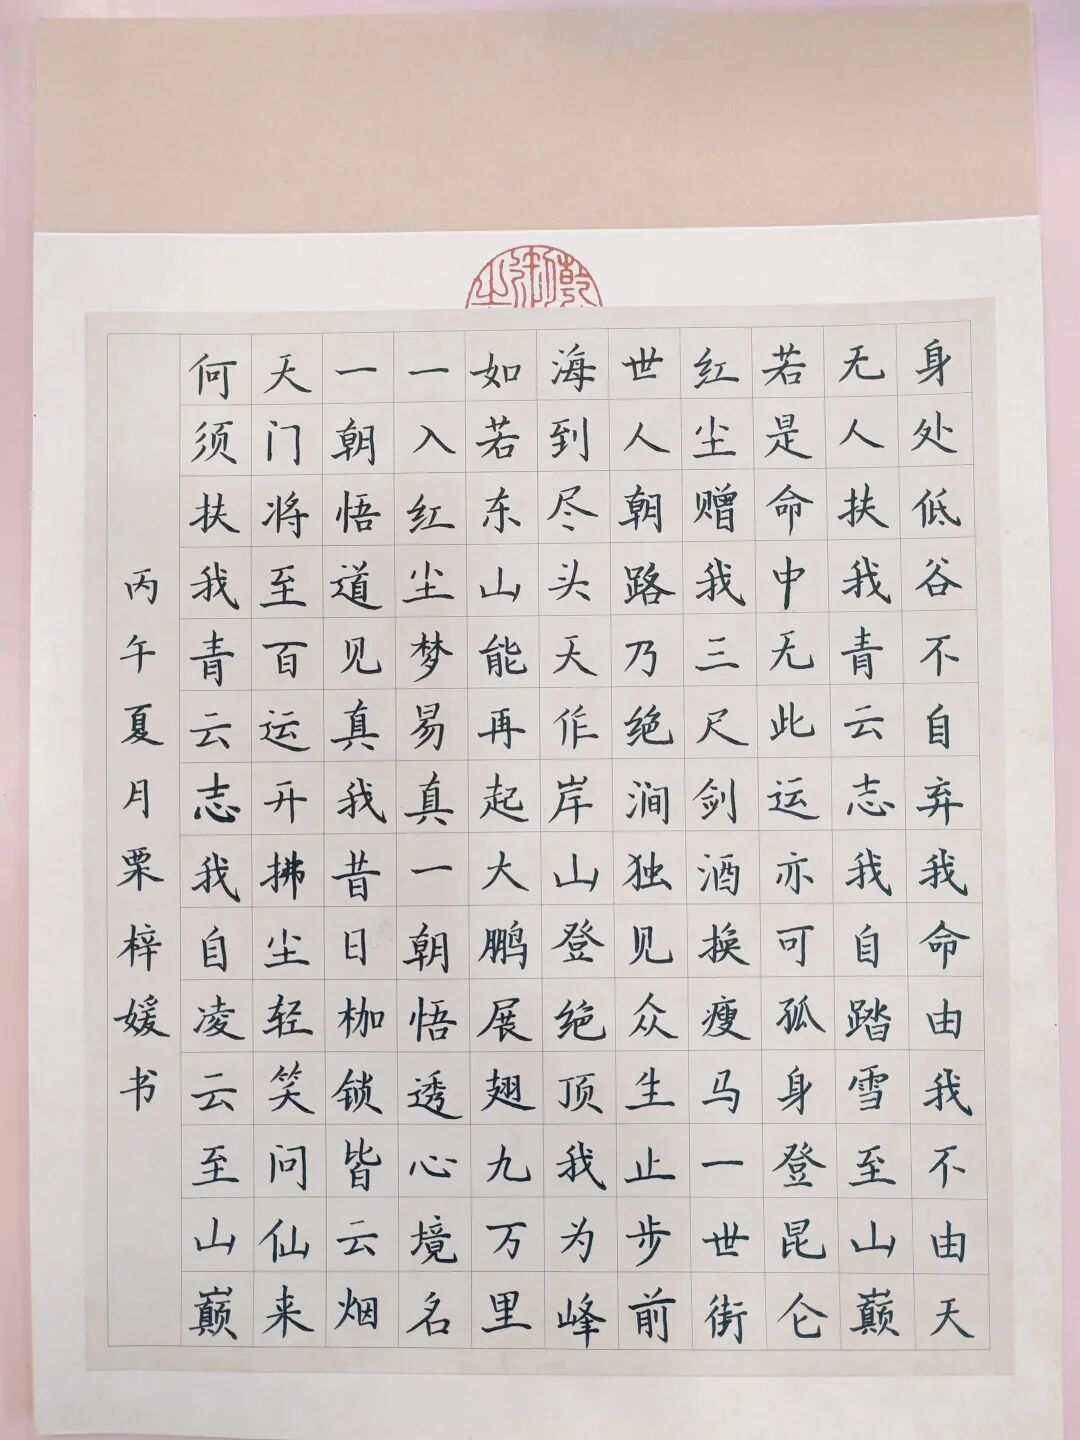 身处低谷不自弃我命由我不由天
无人扶我青云志我自踏雪至山巅
若是命中无此运亦可孤身登昆仑
红尘赠我三尺剑酒换瘦马一世街
世人朝路乃绝涧独见众生止步前
海到尽头天作岸山登绝顶我为峰
如若东山能再起大鹏展翅九万里
一入红尘梦易真一朝悟透心境名
一朝悟道见真我昔日枷锁皆云烟
天门将至百运开拂尘轻笑问仙来
何须扶我青云志我自凌云至山巅
丙午夏月栗梓媛书